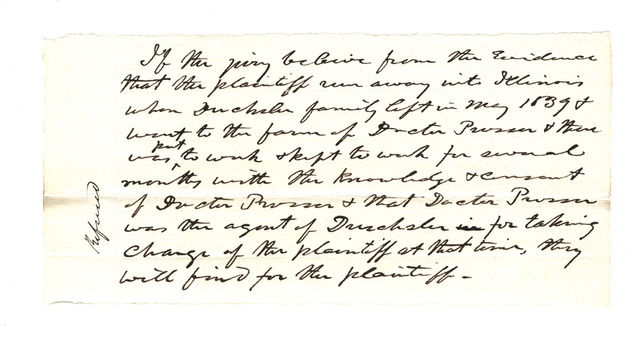 If the jury believe from the Evidence
that the plaintiff run away into Illinois
when Duchsler family left in May 1839 &
went to the farm of Doctor Prosser & there
was put to work & kept to work for several
months with the knowledge & consent
of Doctor Prosser & that Doctor Prosser
was the agent of Duschsler in for taking
charge of the plaintiff at that time, they
will find for the plaintiff -
Refused